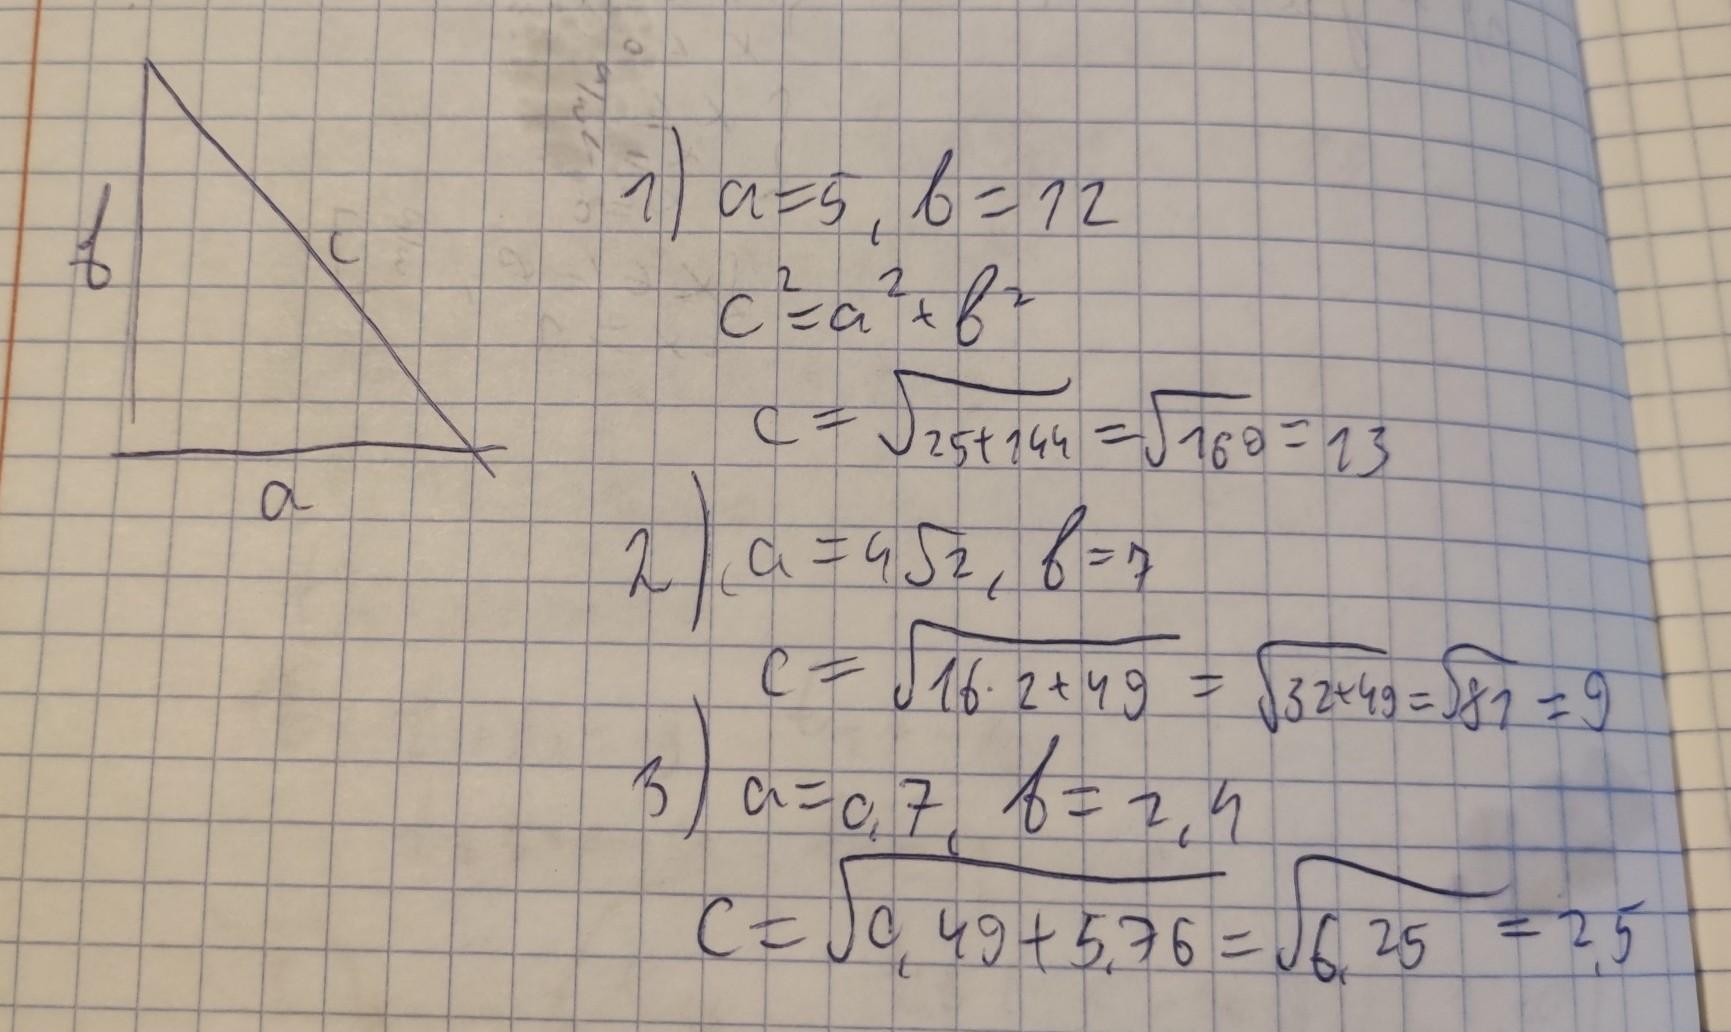 b
c
a
1) a=5, b=12
c²=a²+b²
c=√25+144=√169=13
2) a=4√2, b=7
c=√16·2+49=√32+49=√81=9
3) a=0,7, b=2,4
c=√0,49+5,76=√6,25=2,5